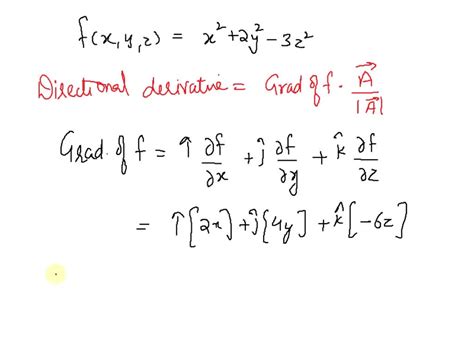 f(x,y,z) = x²+2y²-3z²
Directional derivative = Grad of f · A⃗/|A⃗|
Grad. of f = î ∂f/∂x + ĵ ∂f/∂y + k̂ ∂f/∂z
= î[2x]+ĵ[4y]+k̂[-6z]